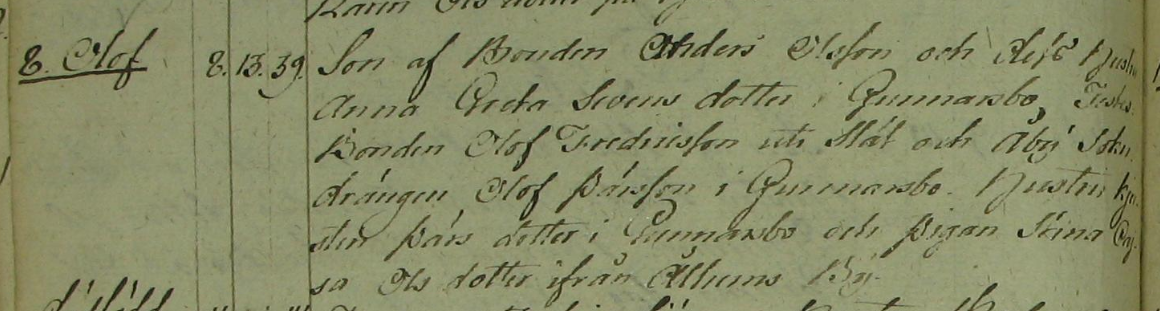 8. Olof 8. 13. 39. Son af Bonden Anders Olsson och dess Hustru
Anna Greta Svens dotter i Gunnarsbo, Testes
Bonden Olof Fredricsson uti Slät och Åby Sokn.
drängen Olof Pärsson i Gunnarsbo. Hustru Kjer-
stin Pärs dotter i Gunnarsbo och Pigan Stina Caj-
sa Ols dotter ifrån Älhems By.